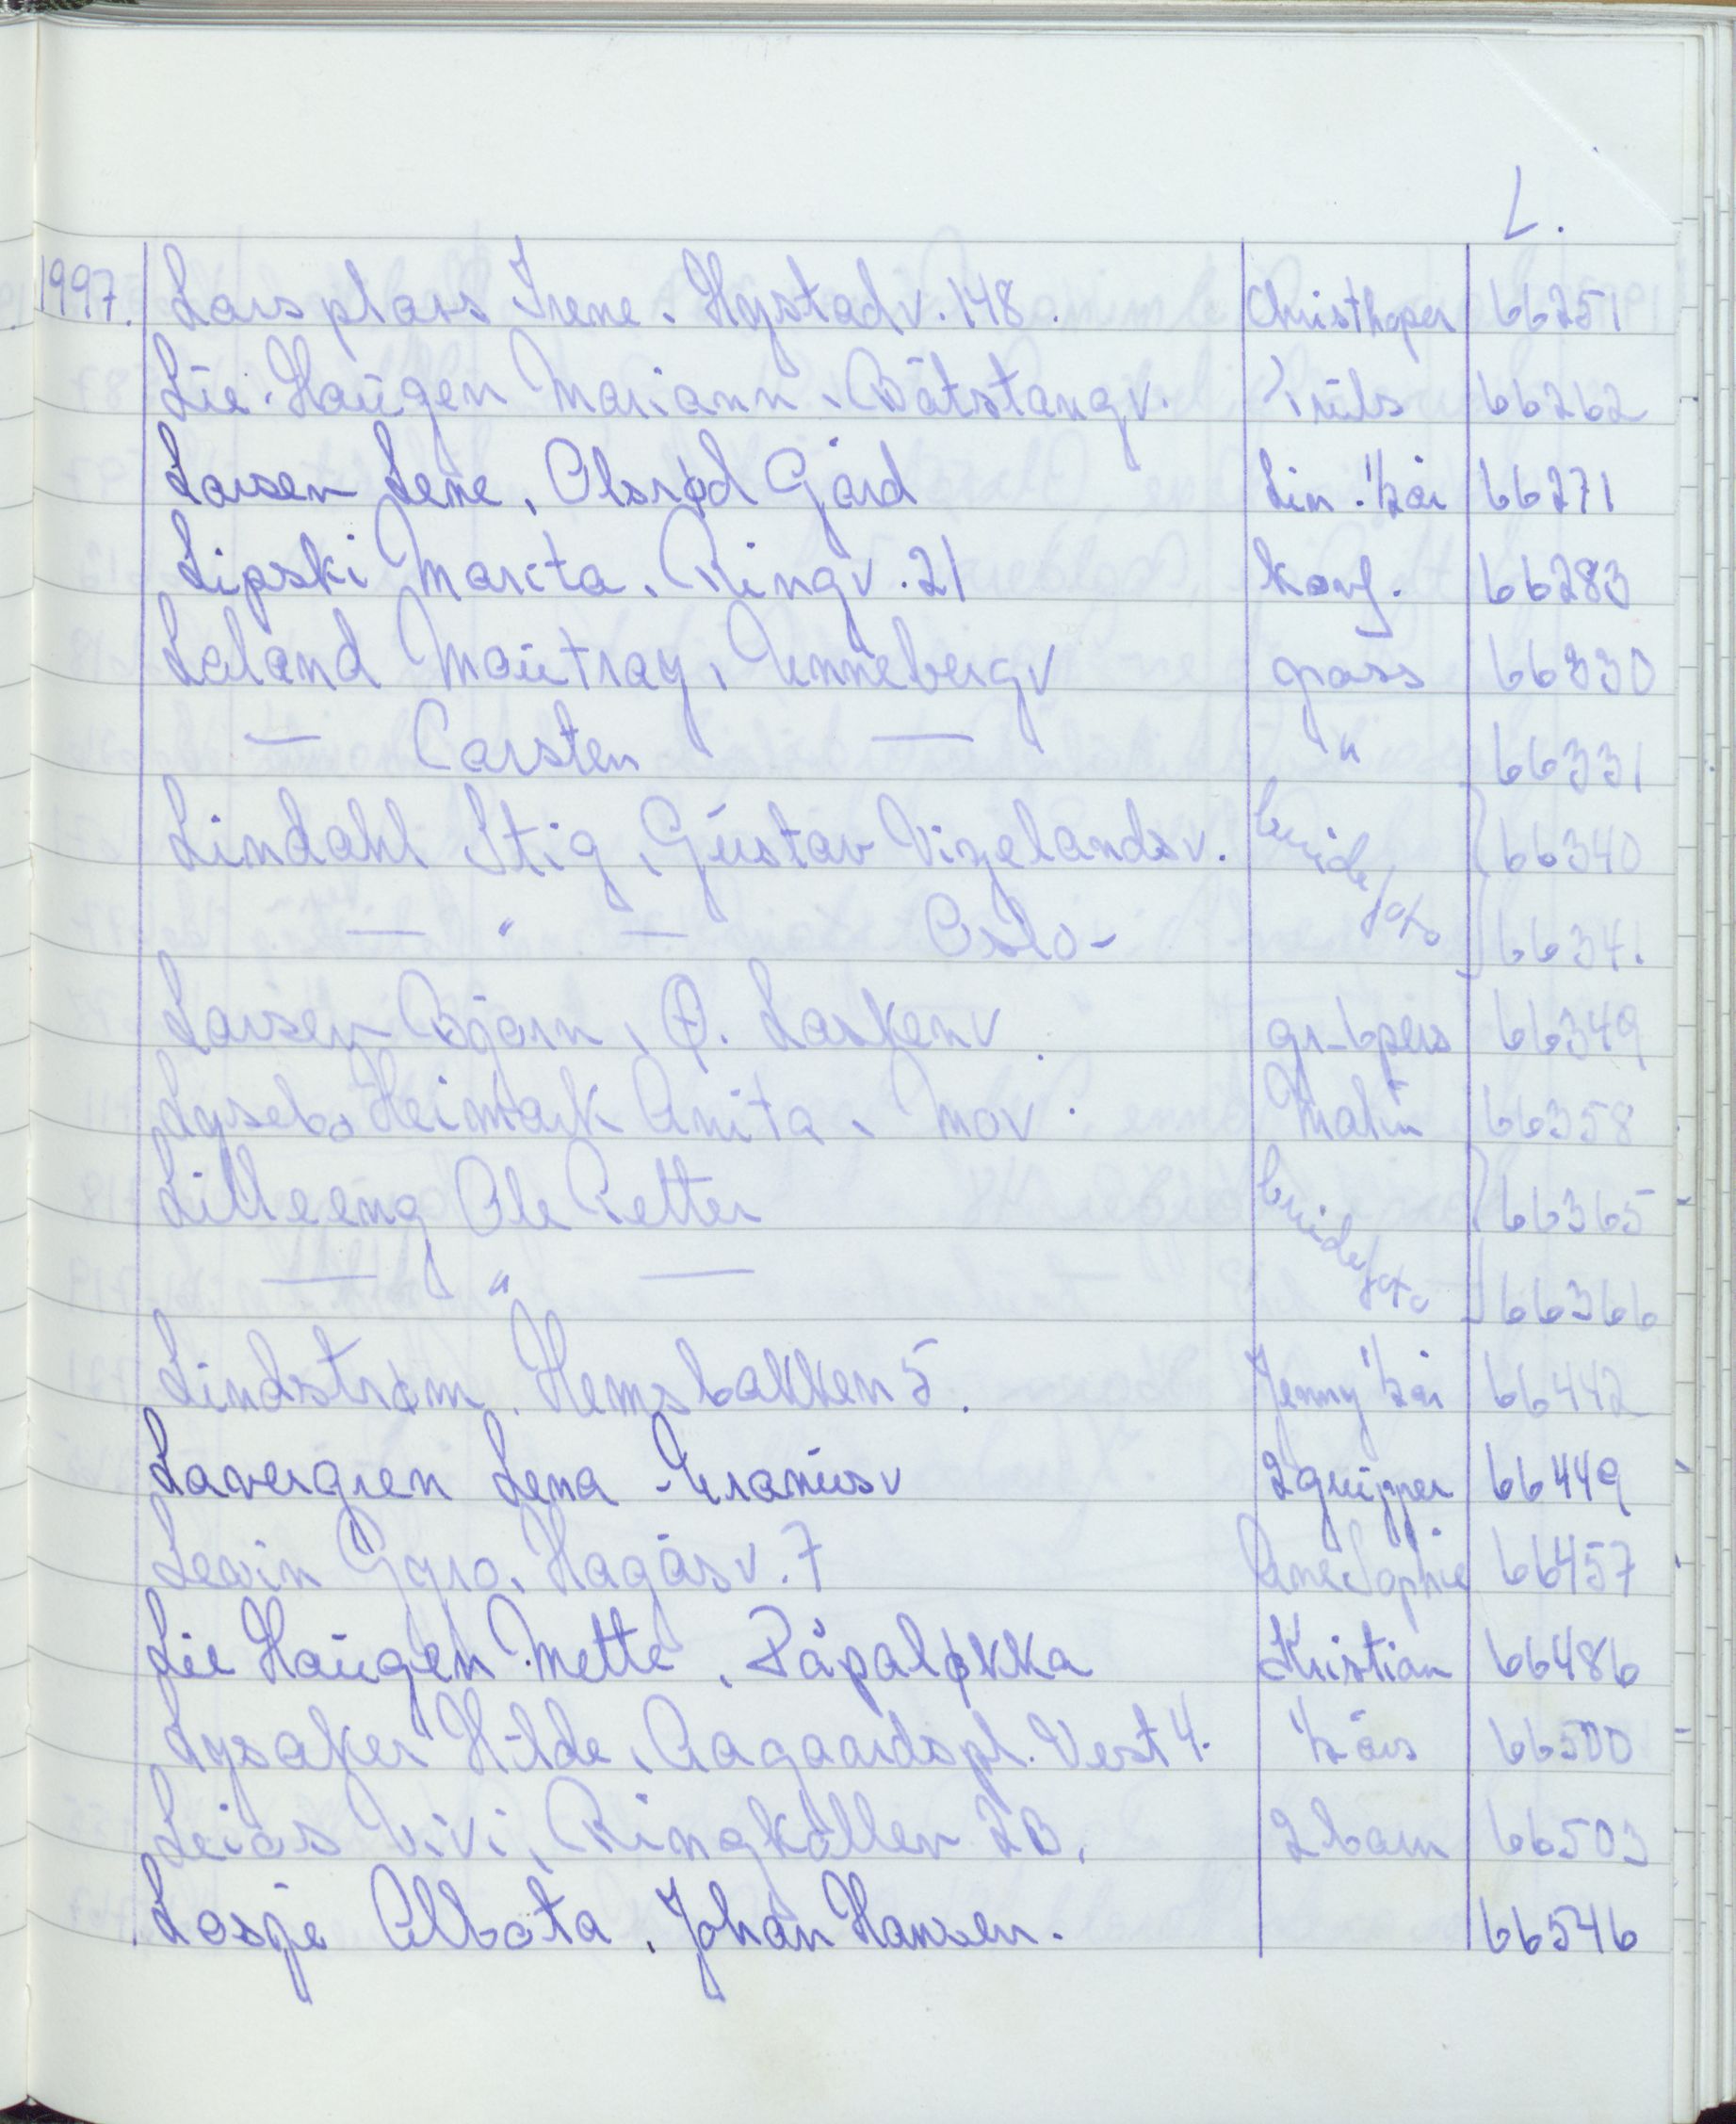 L.
1997. Larsplass Irene. Hystadv. 148. Christhoper 66251
Lie-Haugen Mariann. Båtstangv. Truls 66262
Larsen Lene, Olsrød Gård Lin. 1/2 år 66271
Lipski Marita. Ringv. 21 konf. 66283
Leland Mautray, Unnebergv pass 66330
— Carsten — " 66331
Lindahl Stig, Gustav Vigelandsv. brude } 66340
— " — Oslo- foto } 66341.
Larsen Bjørn, Ø. Laskenv. gr_6pers 66349
Lysebo Heimtark Anita, Mov. Malin 66358
Lilleeng Ole Petter brude } 66365
— " — foto } 66366
Lindstrøm, Hemsbakken 5. Jenny 1/2 år 66442
Lavergren Lena - Uranusv 2 grupper 66449
Lewin Gyro, Hagåsv. 7 Ane Sophie 66457
Lie Haugen Mette, Påpaløkka Kristian 66486
Lysaker Hilde, Aagaardspl. Vest 4. 1/2 års 66500
Leiås Vivi, Ringkollen 2B, 2 barn 66503
Losje Albota, Johan Hansen. 66546